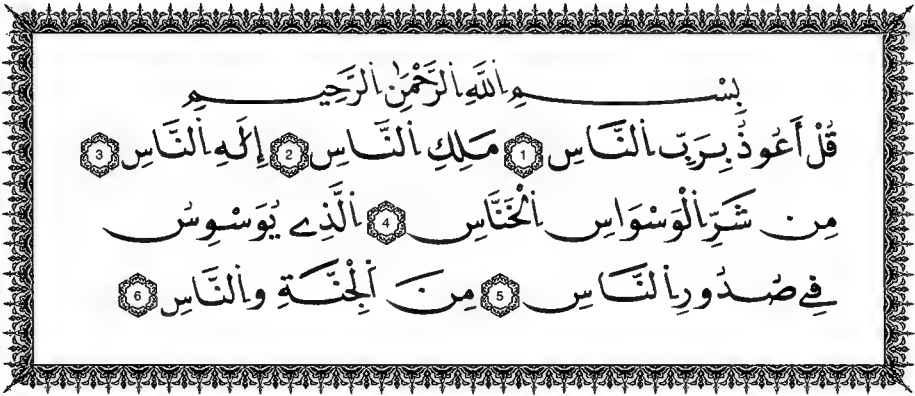 بِسْمِ اِللَّهِ اِلرَّحْمَٰنِ اِلرَّحِيمِ
قُلْ أَعُوذُ بِرَبِّ اِلنَّاسِ 1 مَلِكِ اِلنَّاسِ 2 إِلَٰهِ اِلنَّاسِ 3
مِن شَرِّ اِلْوَسْوَاسِ اِلْخَنَّاسِ 4 اِلَّذِے يُوَسْوِسُ
فِے صُدُورِ اِلنَّاسِ 5 مِنَ اَلْجِنَّةِ وَالنَّاسِ 6